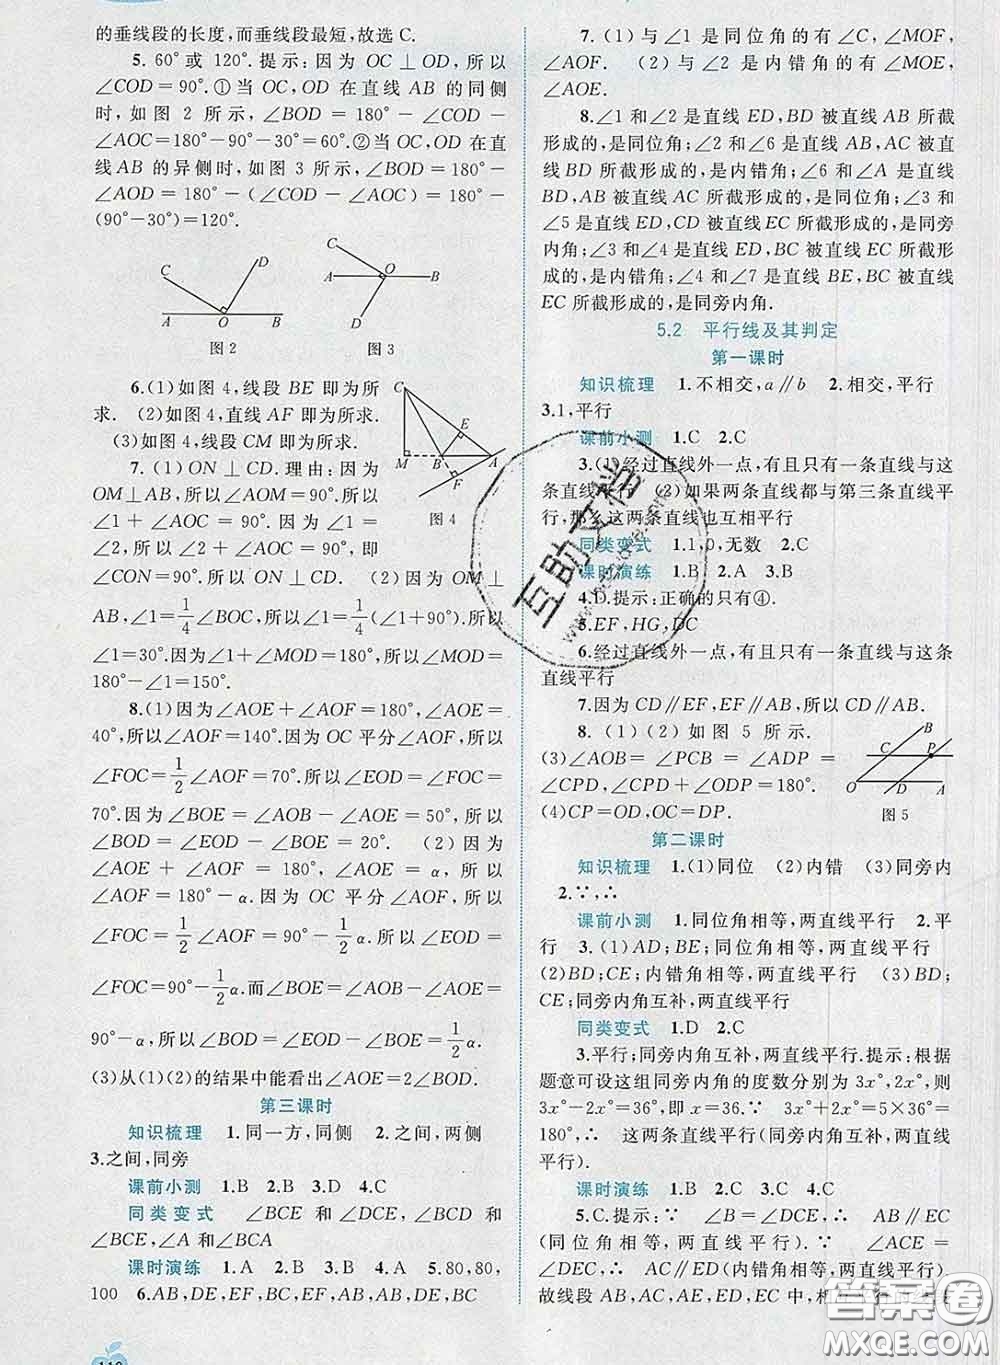 的垂线段的长度,而垂线段最短,故选 C.
5. 60°或 120°. 提示:因为 OC⊥OD,所以
∠COD=90°.①当 OC,OD 在直线 AB 的同侧
时,如图 2 所示,∠BOD=180°-∠COD-
∠AOC=180°-90°-30°=60°.②当 OC,OD 在
直线 AB 的异侧时,如图 3 所示,∠BOD=180°-
∠AOD=180°-(∠COD-∠AOC)=180°-
(90°-30°)=120°.
C D A O B
图 2
C O A B D
图 3
6.(1)如图 4,线段 BE 即为所
求. (2)如图 4,直线 AF 即为所求.
(3)如图 4,线段 CM 即为所求.
C E M B A F
图 4
7.(1)ON⊥CD.理由:因为
OM⊥AB,所以∠AOM=90°,所以
∠1+∠AOC=90°.因为∠1=
∠2,所以∠2+∠AOC=90°,即
∠CON=90°.所以 ON⊥CD. (2)因为 OM⊥
AB,∠1=1/4∠BOC,所以∠1+90°=4∠1.所以
∠1=30°.因为∠1+∠MOD=180°,所以∠MOD=
180°-∠1=150°.
8.(1)因为∠AOE+∠AOF=180°,∠AOE=
40°,所以∠AOF=140°.因为 OC 平分∠AOF,所以
∠FOC=1/2∠AOF=70°.所以∠EOD=∠FOC=
70°.因为∠BOE=∠AOB-∠AOE=50°,所以
∠BOD=∠EOD-∠BOE=20°. (2)因为
∠AOE+∠AOF=180°,∠AOE=α,所以
∠AOF=180°-α.因为 OC 平分∠AOF,所以
∠FOC=1/2∠AOF=90°-1/2α.所以∠EOD=
∠FOC=90°-1/2α.而∠BOE=∠AOB-∠AOE=
90°-α,所以∠BOD=∠EOD-∠BOE=1/2α.
(3)从(1)(2)的结果中能看出∠AOE=2∠BOD.
第三课时
知识梳理 1.同一方,同侧 2.之间,两侧
3.之间,同旁
课前小测 1.B 2.B 3.D 4.C
同类变式 ∠BCE 和∠DCE,∠BCD 和
∠BCE,∠A 和∠BCA
课时演练 1.A 2.B 3.B 4.A 5.80,80,
100 6.AB,DE,EF,BC,EF,BC,AB,DE,BC
7.(1)与∠1 是同位角的有∠C,∠MOF,
∠AOF. (2)与∠2 是内错角的有∠MOE,
∠AOE.
8.∠1 和∠2 是直线 ED,BD 被直线 AB 所截
形成的,是同位角;∠2 和∠6 是直线 AB,AC 被直
线 BD 所截形成的,是内错角;∠6 和∠A 是直线
BD,AB 被直线 AC 所截形成的,是同位角;∠3 和
∠5是直线 ED,CD 被直线 EC 所截形成的,是同旁
内角;∠3 和∠4 是直线 ED,BC 被直线 EC 所截形
成的,是内错角;∠4 和∠7 是直线 BE,BC 被直线
EC 所截形成的,是同旁内角.
5.2 平行线及其判定
第一课时
知识梳理 1.不相交,a∥b 2.相交,平行
3.1,平行
课前小测 1.C 2.C
3.(1)经过直线外一点,有且只有一条直线与这
条直线平行 (2)如果两条直线都与第三条直线平
行,那么这两条直线也互相平行
同类变式 1.1,0,无数 2.C
课时演练 1.B 2.A 3.B
4.D.提示:正确的只有④.
5.EF,HG,DC
6.经过直线外一点,有且只有一条直线与这条
直线平行
7.因为 CD∥EF,EF∥AB,所以 CD∥AB.
8.(1)(2)如图 5 所示.
(3)∠AOB=∠PCB=∠ADP=
∠CPD,∠CPD+∠ODP=180°.
(4)CP=OD,OC=DP.
B C P O D A
图 5
第二课时
知识梳理 1.(1)同位 (2)内错 (3)同旁内
2.∵,∴
课前小测 1.同位角相等,两直线平行 2.平
行 3.(1)AD;BE;同位角相等,两直线平行
(2)BD;CE;内错角相等,两直线平行 (3)BD;
CE;同旁内角互补,两直线平行
同类变式 1.D 2.C
3.平行;同旁内角互补,两直线平行.提示:根据
题意可设这组同旁内角的度数分别为 3x°,2x°,则
3x°-2x°=36°,即 x=36.∵ 3x°+2x°=5×36°=
180°,∴ 这两条直线平行(同旁内角互补,两直线
平行).
课时演练 1.B 2.C 3.C 4.C
5.C.提示:∵ ∠B=∠DCE,∴ AB∥EC
(同位角相等,两直线平行).∵ ∠ACE=
∠DEC,∴ AC∥ED(内错角相等,两直线平行).
故线段 AB,AC,AE,ED,EC 中,相
互助文档
答案圈
MXQE.COM